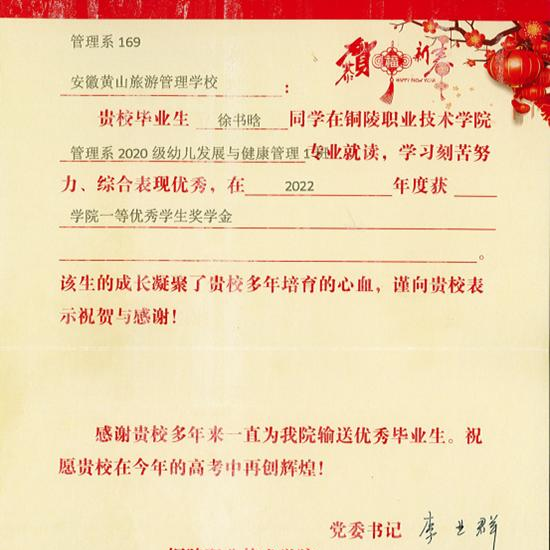 管理系169
恭贺新春
福
HAPPY NEW YEAR
安徽黄山旅游管理学校:
贵校毕业生 徐书晗 同学在铜陵职业技术学院
管理系2020级幼儿发展与健康管理1班专业就读，学习刻苦努
力、综合表现优秀，在 2022 年度获
学院一等优秀学生奖学金
。
该生的成长凝聚了贵校多年培育的心血，谨向贵校表
示祝贺与感谢！
感谢贵校多年来一直为我院输送优秀毕业生。祝
愿贵校在今年的高考中再创辉煌！
党委书记 李业群